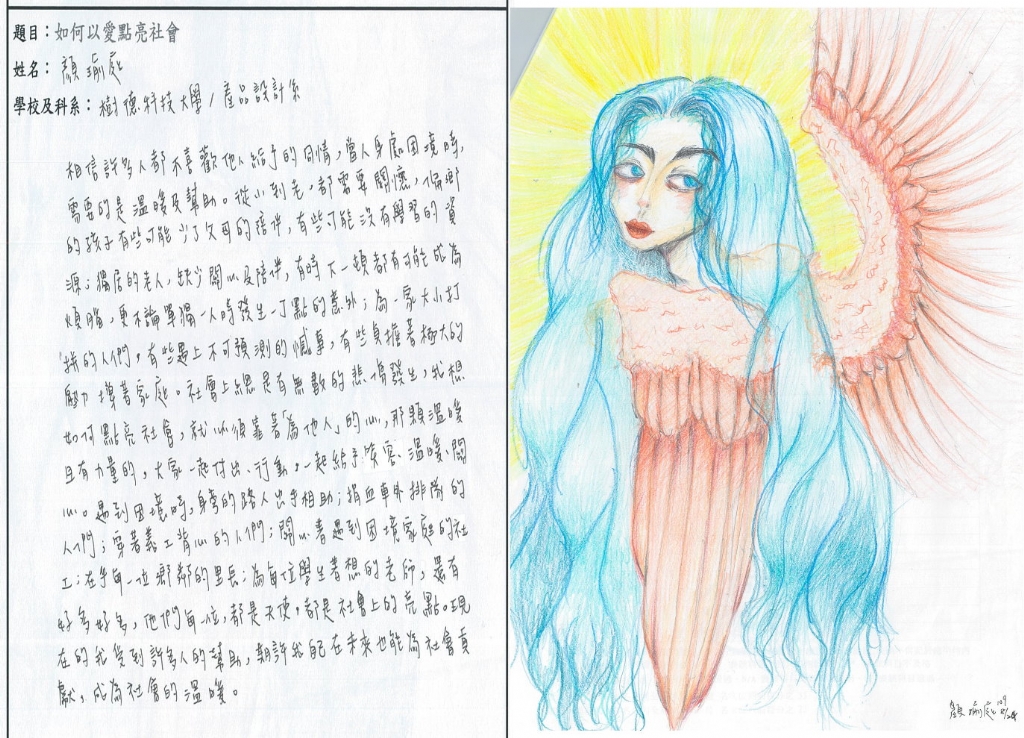 題目：如何以愛點亮社會
姓名：顏瑜庭
學校及科系：樹德科技大學/產品設計系
相信許多人都不喜歡他人給予的同情，當人身處困境時，
需要的是溫暖及幫助。從小到老，都需要關懷，偏鄉
的孩子有些可能少了父母的陪伴，有些可能沒有學習的資
源；獨居的老人，缺少關心及陪伴，有時下一頓都有可能成為
煩腦，更不論單獨一人時發生一丁點的意外；為一家大小打
拼的人們，有些遇上不可預測的憾事，有些負擔著極大的
壓力撐著家庭。社會上總是有無數的悲傷發生，我想
如何點亮社會，就必須靠著「為他人」的心，那顆溫暖
且有力量的，大家一起付出、行動，一起給予笑容、溫暖、關
心。遇到困境時，身旁的路人出手相助；捐血車外排隊的
人們；穿著義工背心的人們；關心著遇到困境家庭的社
工；在乎每一位鄉鄰的里長；為每位學生著想的老師，還有
好多好多，他們每一位，都是天使，都是社會上的亮點。現
在的我受到許多人的幫助，期許我自己在未來也能為社會貢
獻，成為社會的溫暖。
顏瑜庭